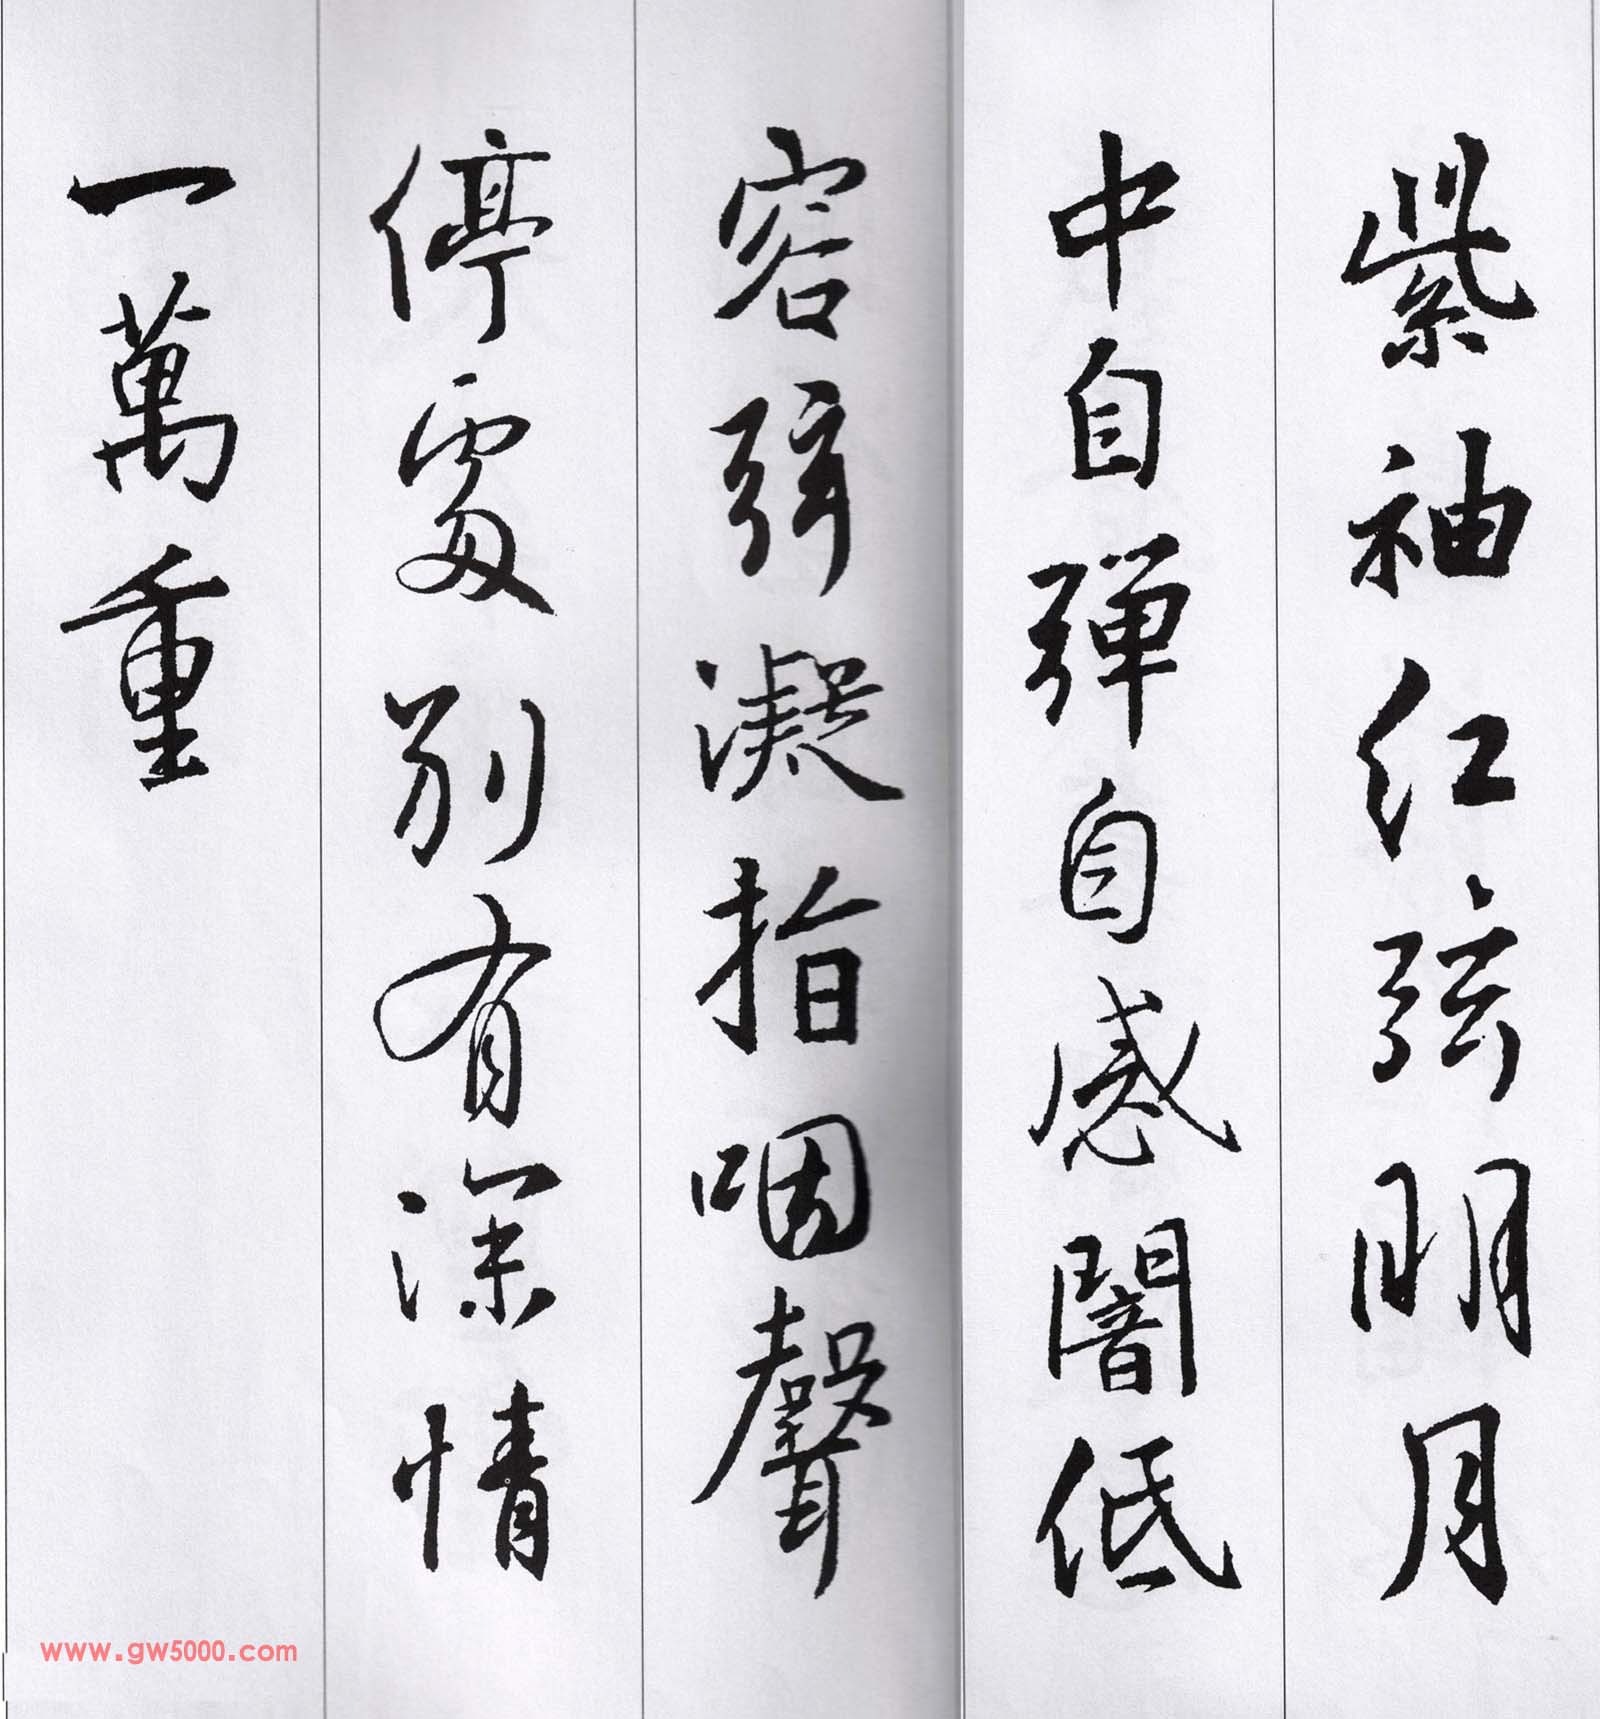 紫袖红弦明月
中自弹自感闇低
容弦凝指咽聲
停處别有深情
一萬重
www.gw5000.com